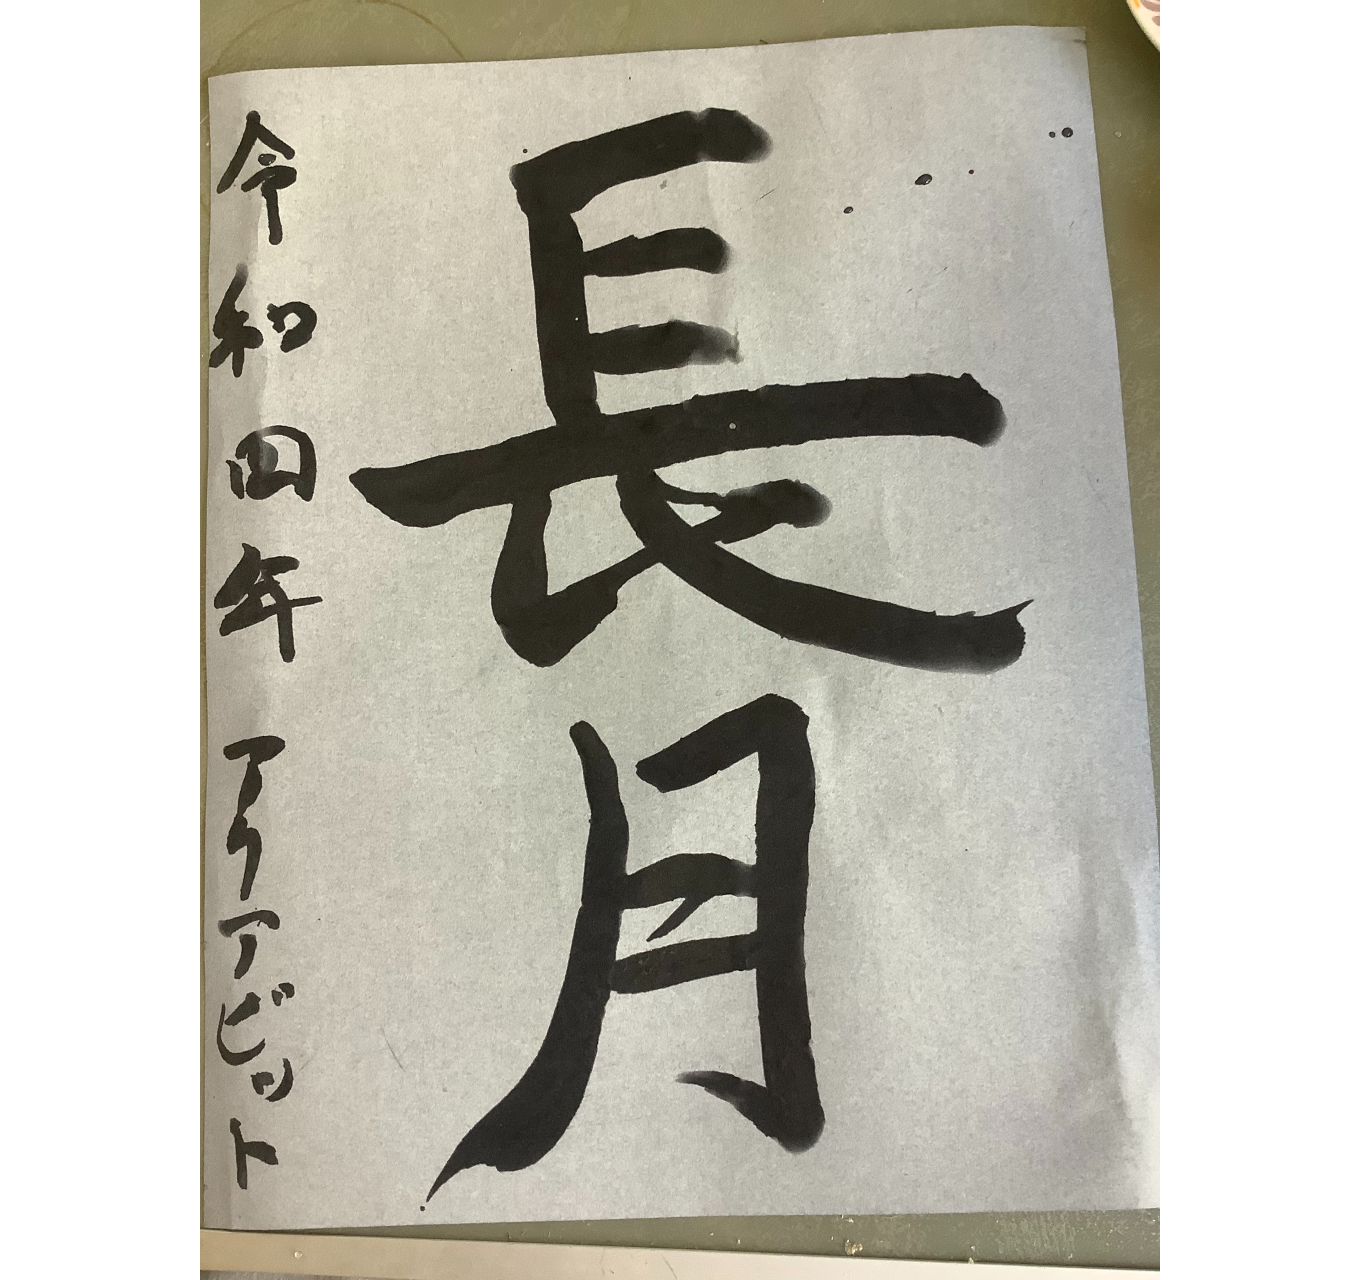 長月
令和四年 アクアビット